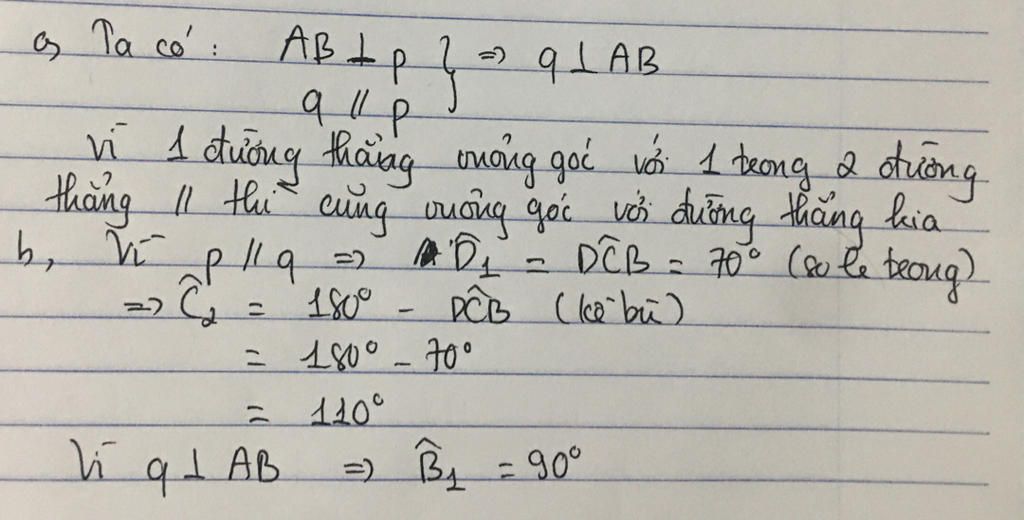 a, Ta có: AB ⊥ p } => q ⊥ AB
q // p
Vì 1 đường thẳng vuông góc với 1 trong 2 đường
thẳng // thì cũng vuông góc với đường thẳng kia
b, Vì p // q => D̂₁ = DĈB = 70° (so le trong)
=> Ĉ₂ = 180° - DĈB (kề bù)
= 180° - 70°
= 110°
Vì q ⊥ AB => B̂₁ = 90°